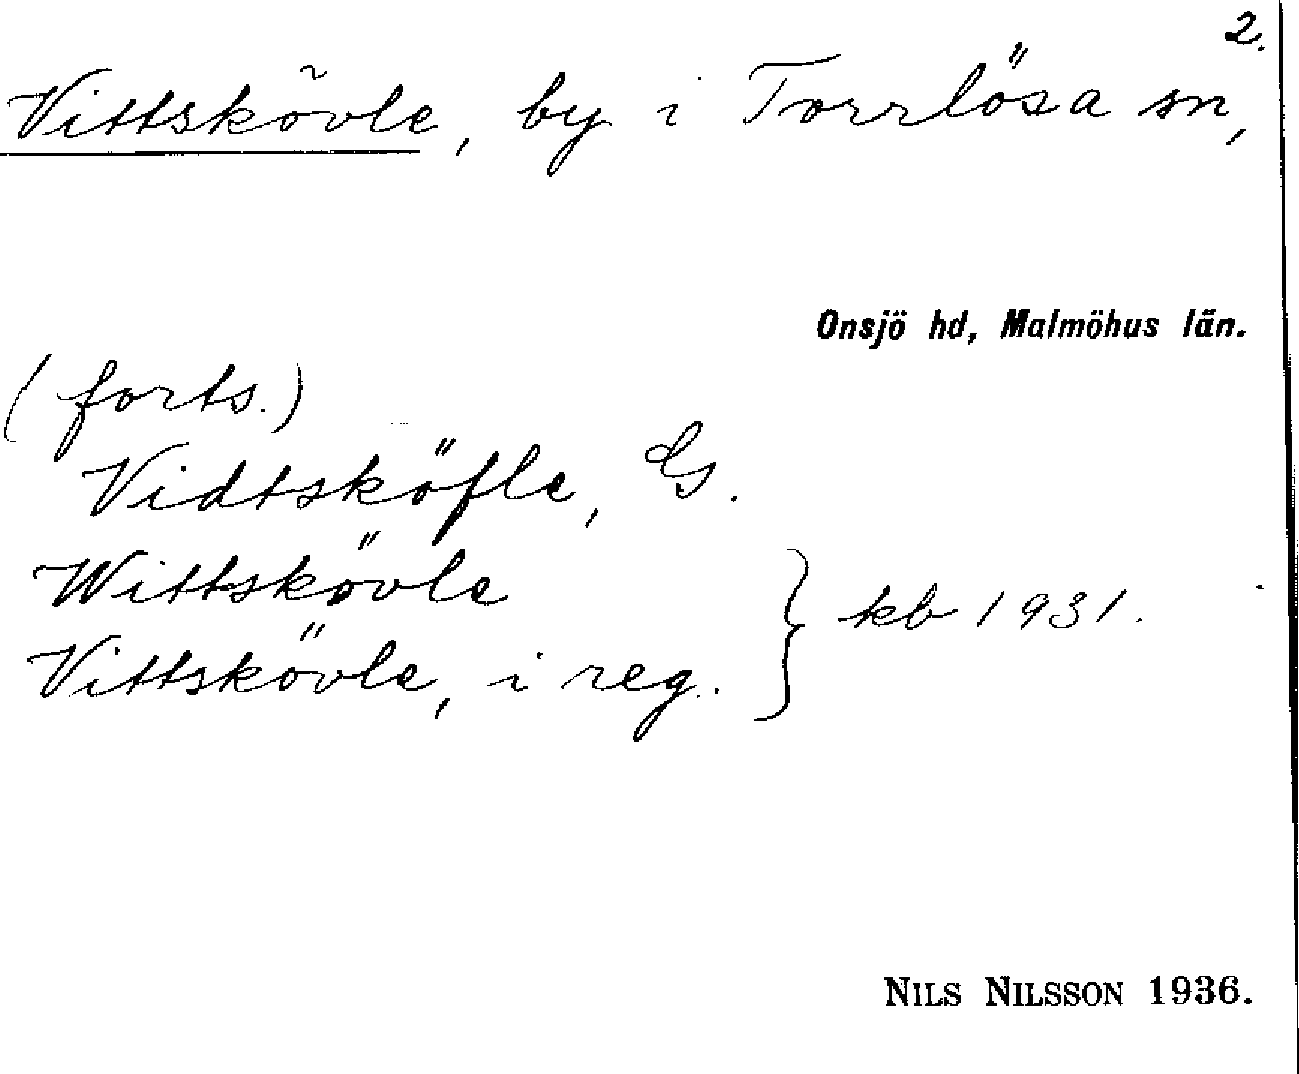 2.
Vittskövle, by i Torrlösa sn,
Onsjö hd, Malmöhus län.
(forts.)
Vidtsköfle, G.
Wittskövle
Vittskövle, i reg. } kb 1931.
NILS NILSSON 1936.